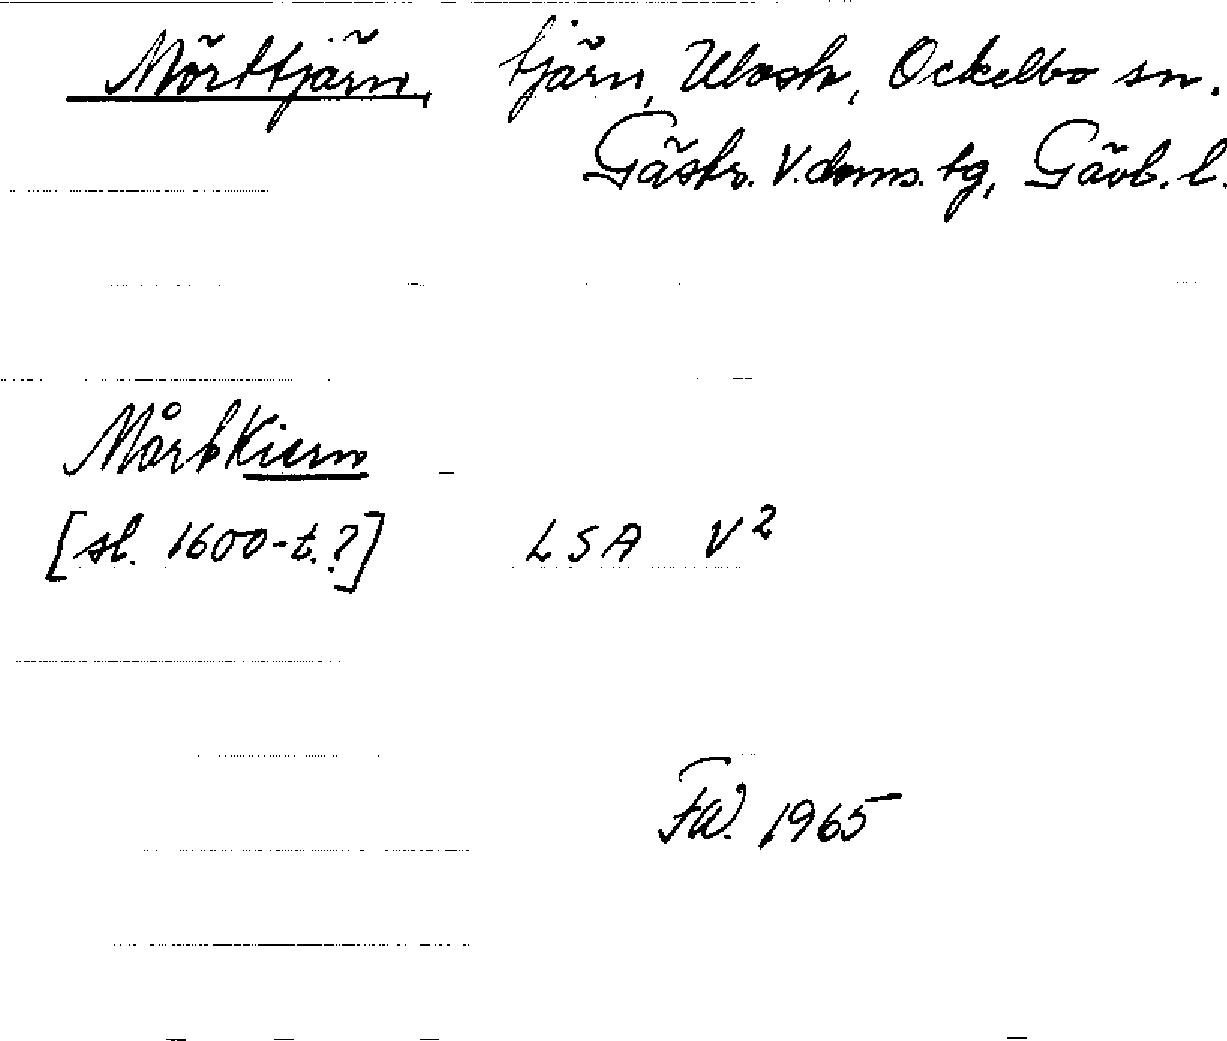 Mörttjärn, tjärn, Ulvsh, Ockelbo sn.
Gästr. V. doms. tg, Gävb. l.
MårtKiern
[sl. 1600-t.?] LSA V²
Fa). 1965